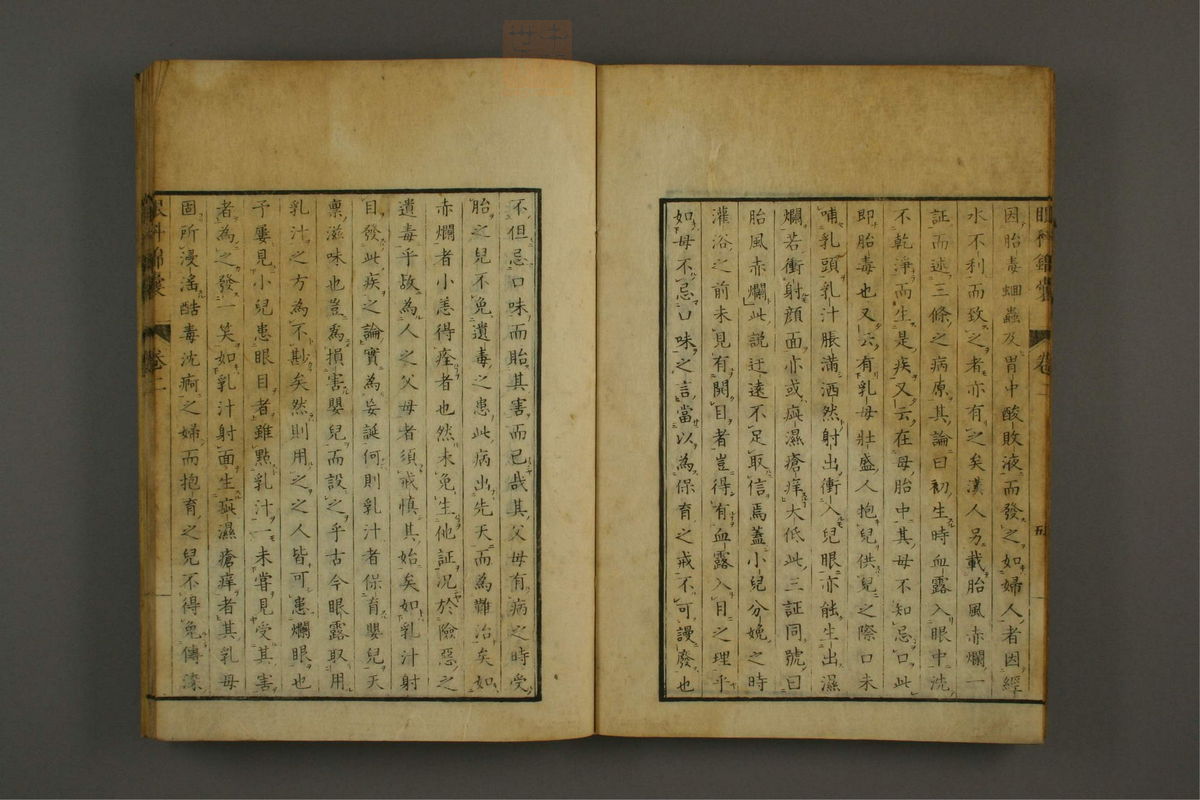 眼科錦囊 卷二 五
因胎毒蛔蟲及胃中酸敗液而發之如婦人者因經
水不利而致之者亦有之矣漢人另載胎風赤爛一
証而述三條之病原其論曰初生時血露入眼中洗
不乾淨而生是疾又云在母胎中其母不知忌口此
即胎毒也又云有乳母壯盛人抱兒供兒之際口未
哺乳頭乳汁脹滿洒然射出衝入兒眼亦能生出濕
爛若衝射顏面亦或與濕瘡痒大低此三証同號曰
胎風赤爛此説迂遠不足取信焉蓋小兒分娩之時
灌浴之前未見有開目者豈得有血露入目之理乎
如母不忌口味之言當以為保育之戒不可謾廢也
不但忌口味而貽其害而已哉其父母有病之時受
胎之兒不免遺毒之患此病出先天而為難治矣如
赤爛者小恙得痊者也然未免生他証况於險惡之
遺毒乎故為人之父母者須戒慎其始矣如乳汁射
目發此疾之論實為妄誕何則乳汁者保育嬰兒天
稟滋味也豈為損害嬰兒而設之乎古今眼露取用
乳汁之方為不尠矣然則用之之人皆可患爛眼也
予屢見小兒患眼目者雖點乳汁一未嘗見受其害
者為之發一笑如乳汁射面生與濕瘡痒者其乳母
固所浸淫酷毒沈痾之婦而抱育之兒不得免傳染
眼科錦囊 卷二